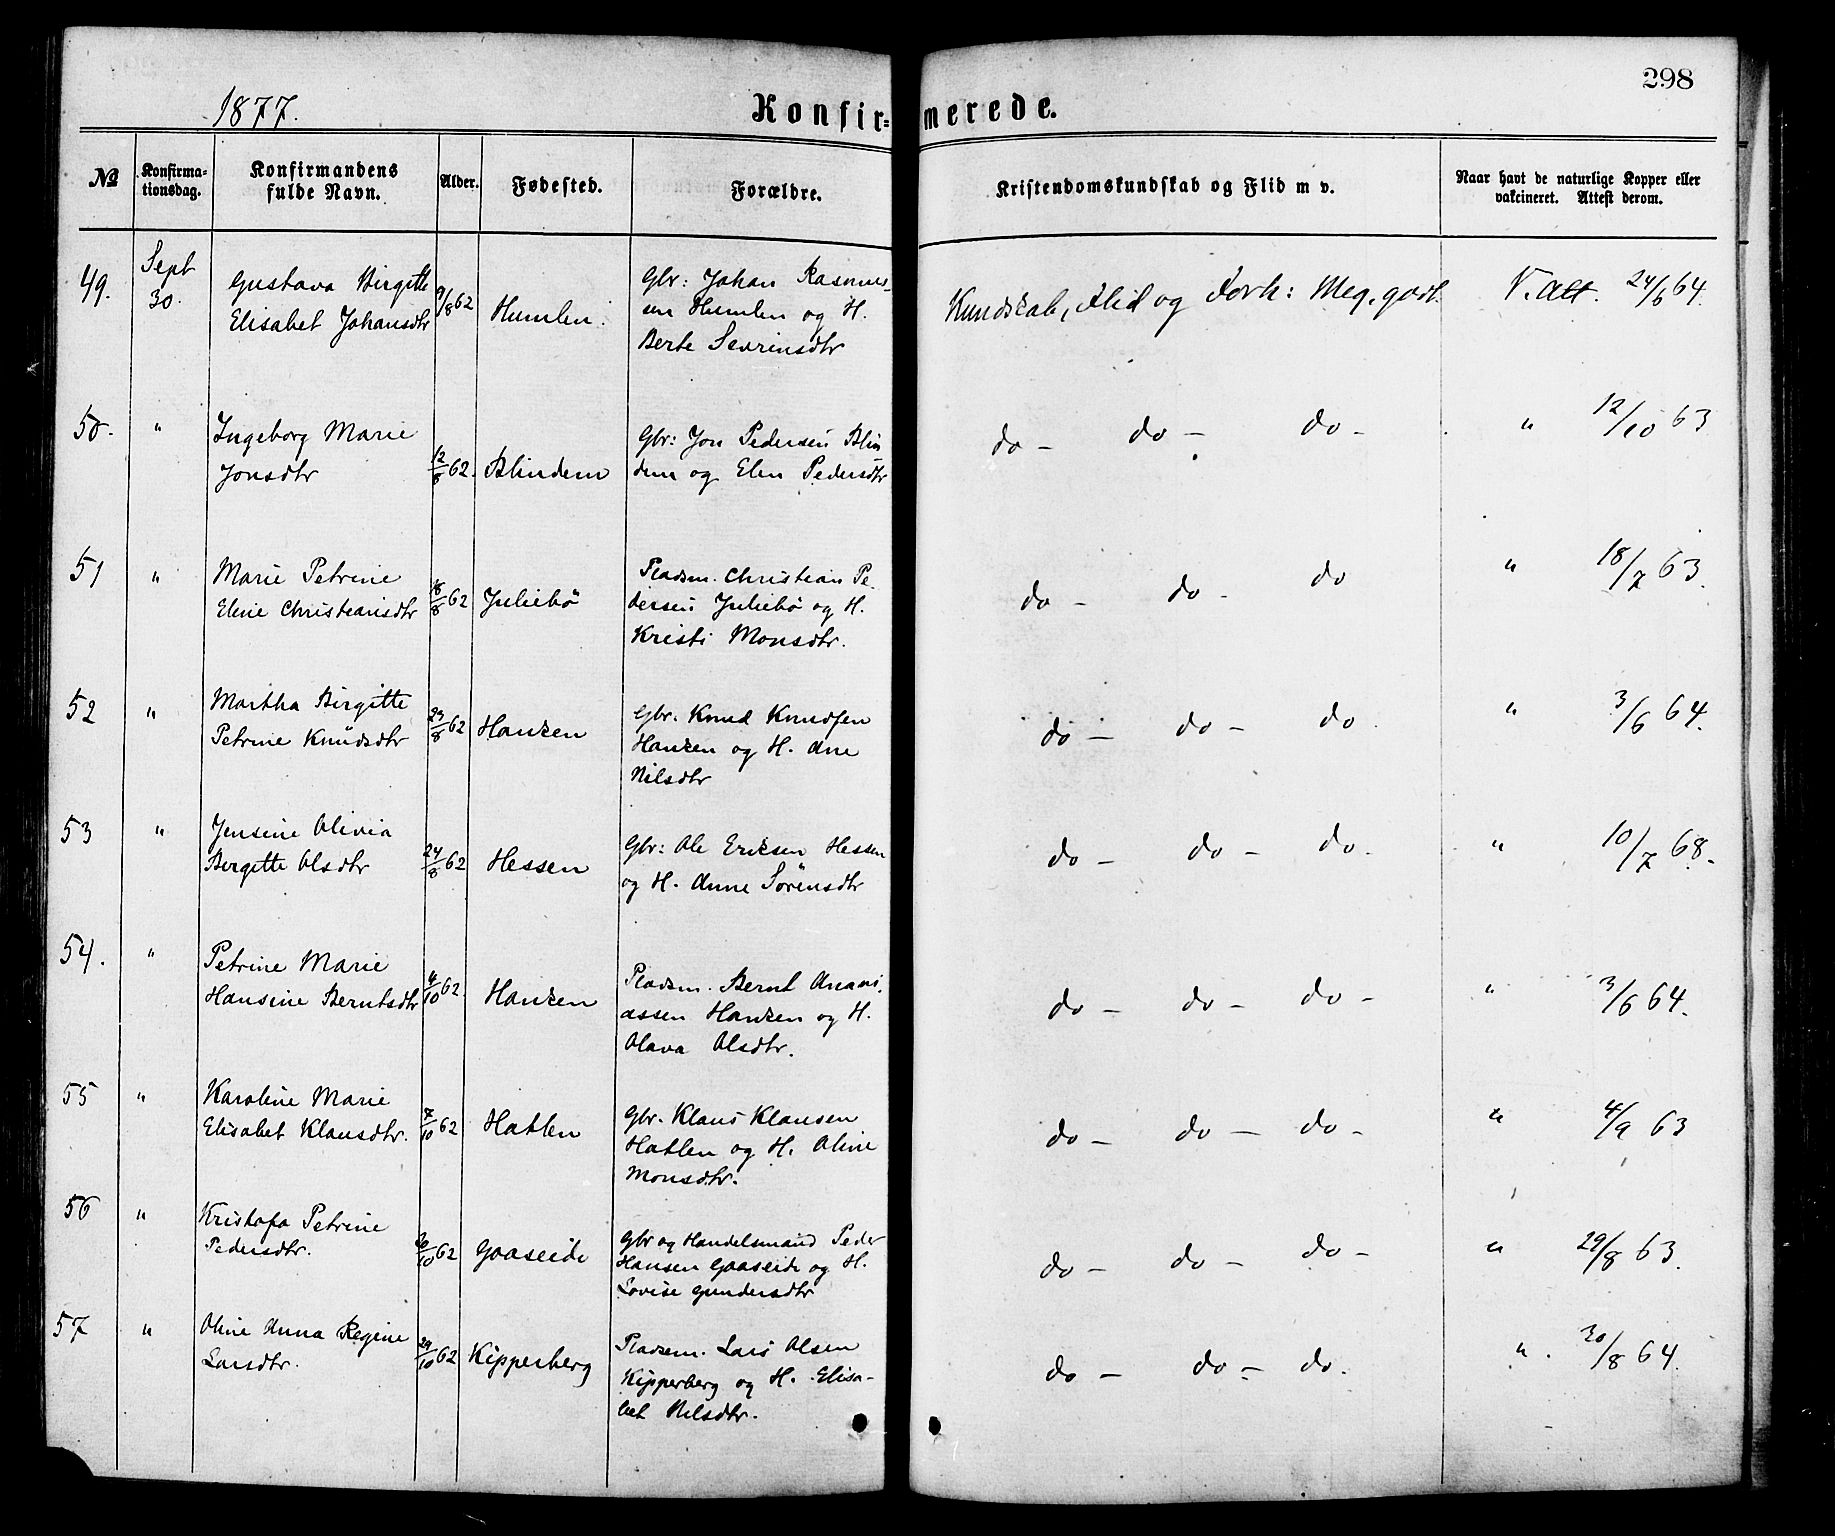 298
1877.
Konfir= merede.
№
Konfirma-
tionsdag.
Konfirmandens
fulde Navn.
Alder.
Fødested.
Forældre.
Kristendomskundskab og Flid m v.
Naar havt de naturlige Kopper eller
vakcineret. Attest derom.
49.
Sept
30.
Gustava Birgitte
Elisabet Johansdtr
9/8 62
Humlen.
Gbr: Johan Rasmus-
sen Humlen og H.
Berte Sevrinsdtr
Kundskab, Flid og Forh: Meg. godt.
V. att. 24/6 64.
50.
"
Ingeborg Marie
Jonsdtr
12/8 62.
Blindem
Gbr: Jon Pedersen Blin
dem og Elen Pedersdtr
do – do – do –
" 12/10 63
51
"
Marie Petrine
Eline Christiansdtr
18/8 62
Juliebö
Pladsm. Christian Pe-
dersen Juliebö og H.
Kristi Monsdtr.
do – do – do
" 18/7 63.
52
"
Martha Birgitte
Petrine Knudsdtr
29/8 62
Hanken
Gbr. Knud Knudsen
Hanken og H. Ane
Nilsdtr
do – do – do.
" 3/6 64.
53
"
Jensine Olivia
Birgitte Olsdtr
24/8 62
Hessen
Gbr: Ole Eriksen Hessen
og H. Anne Sörensdtr
do – do – do.
" 10/7 68.
54.
"
Petrine Marie
Hansine Berntsdtr
4/10 62.
Hanken
Pladsm. Bernt Anani-
assen Hanken og H.
Olava Olsdtr.
do – do – do –
" 3/6 64.
55
"
Karoline Marie
Elisabet Klausdtr.
7/10 62
Hatlen
Gbr. Klaus Klausen
Hatlen og H. Oline
Monsdtr.
do – do – do –
" 4/9 63
56
"
Kristofa Petrine
Pedersdtr.
20/10 62
Gaaseide
Gbr og Handelsmand Peder
Hansen Gaaseide og H.
Lovise Gundersdtr
do – do – do –
" 29/8 63.
57
"
Oline Anna Regine
Larsdtr.
29/10 62
Kipperberg
Pladsm. Lars Olsen
Kipperberg og H. Elisa-
bet Nilsdtr.
do – do – do.
" 30/8 64.